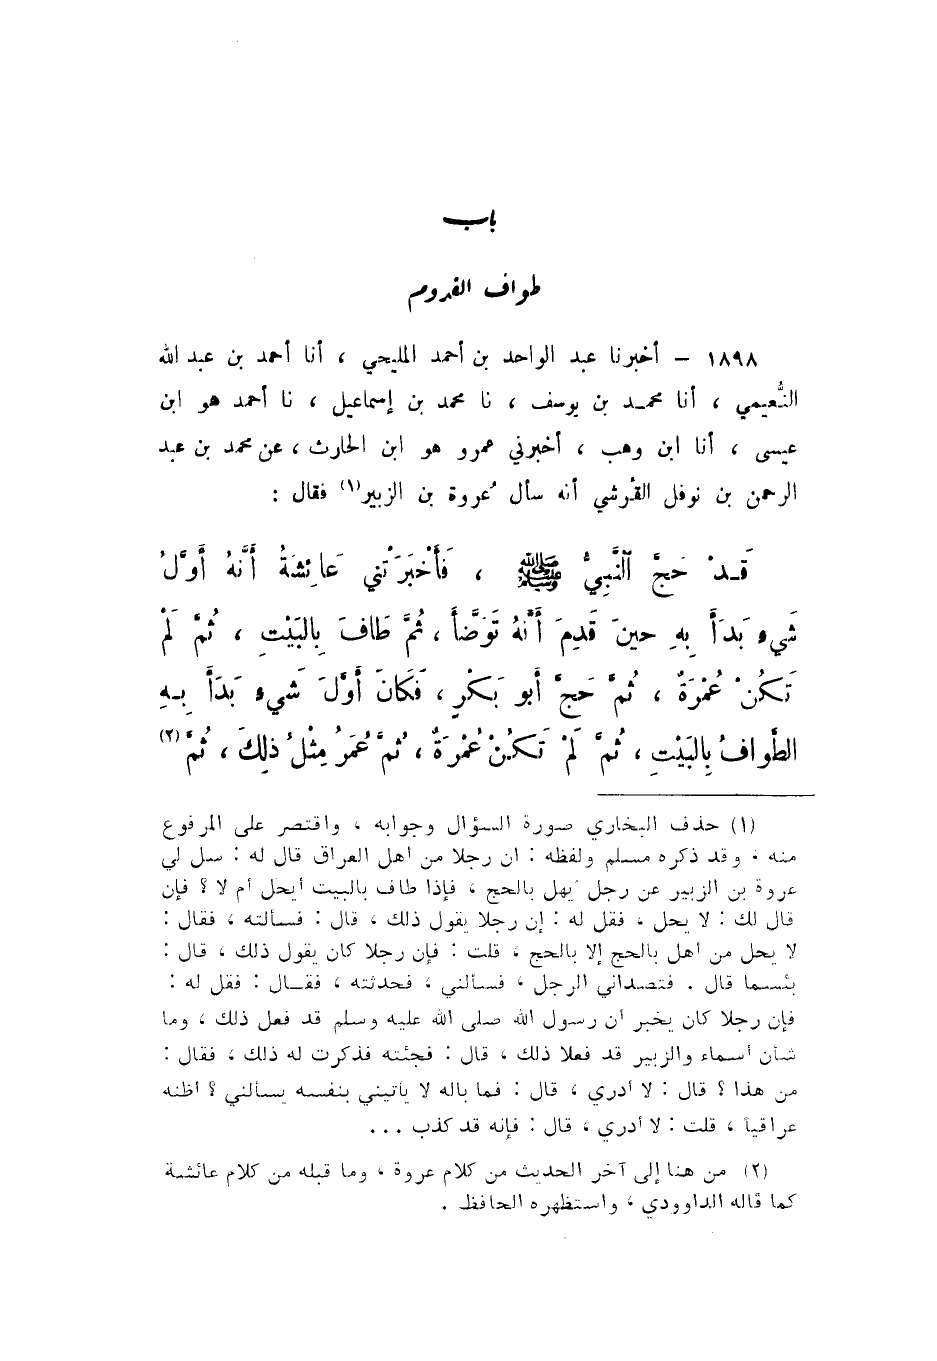 باب
طواف القدوم
١٨٩٨ – أخبرنا عبد الواحد بن أحمد المليحي ، أنا أحمد بن عبد الله
النُّعيمي ، أنا محمد بن يوسف ، نا محمد بن إسماعيل ، نا أحمد هو ابن
عيسى ، أنا ابن وهب ، أخبرني عمرو هو ابن الحارث ، عن محمد بن عبد
الرحمن بن نوفل القُرشي أنه سأل عُروة بن الزبير (١) فقال :
قَدْ حَجَّ النَّبِيُّ ﷺ ، فَأَخْبَرَتْني عَائِشَةُ أَنَّهُ أَوَّلُ
شَيءٍ بَدَأَ بِهِ حينَ قَدِمَ أَنَّهُ تَوَضَّأَ ، ثُمَّ طَافَ بِالبَيْتِ ، ثُمَّ لَمْ
تَكُنْ عُمْرَةٌ ، ثُمَّ حَجَّ أَبو بَكْرٍ ، فَكَانَ أَوَّلَ شَيءٍ بَدَأَ بِهِ
الطَّوافُ بِالبَيْتِ ، ثُمَّ لَمْ تَكُنْ عُمْرَةٌ ، ثُمَّ عُمَرُ مِثْلُ ذلِكَ ، ثُمَّ (٢)
(١) حذف البخاري صورة السؤال وجوابه ، واقتصر على المرفوع
منه ، وقد ذكره مسلم ولفظه : ان رجلا من أهل العراق قال له : سل لي
عروة بن الزبير عن رجل يُهل بالحج ، فإذا طاف بالبيت أيحل أم لا ؟ فإن
قال لك : لا يحل ، فقل له : إن رجلا يقول ذلك ، قال : فسألته ، فقال :
لا يحل من أهل بالحج إلا بالحج ، قلت : فإن رجلا كان يقول ذلك ، قال :
بئسما قال . فتصداني الرجل ، فسألني ، فحدثته ، فقال : فقل له :
فإن رجلا كان يخبر أن رسول الله صلى الله عليه وسلم قد فعل ذلك ، وما
شأن أسماء والزبير قد فعلا ذلك ، قال : فجئته فذكرت له ذلك ، فقال :
من هذا ؟ قال : لا أدري ، قال : فما باله لا يأتيني بنفسه يسألني ؟ أظنه
عراقياً ، قلت : لا أدري ، قال : فإنه قد كذب ...
(٢) من هنا إلى آخر الحديث من كلام عروة ، وما قبله من كلام عائشة
كما قاله الداوودي ، واستظهره الحافظ .